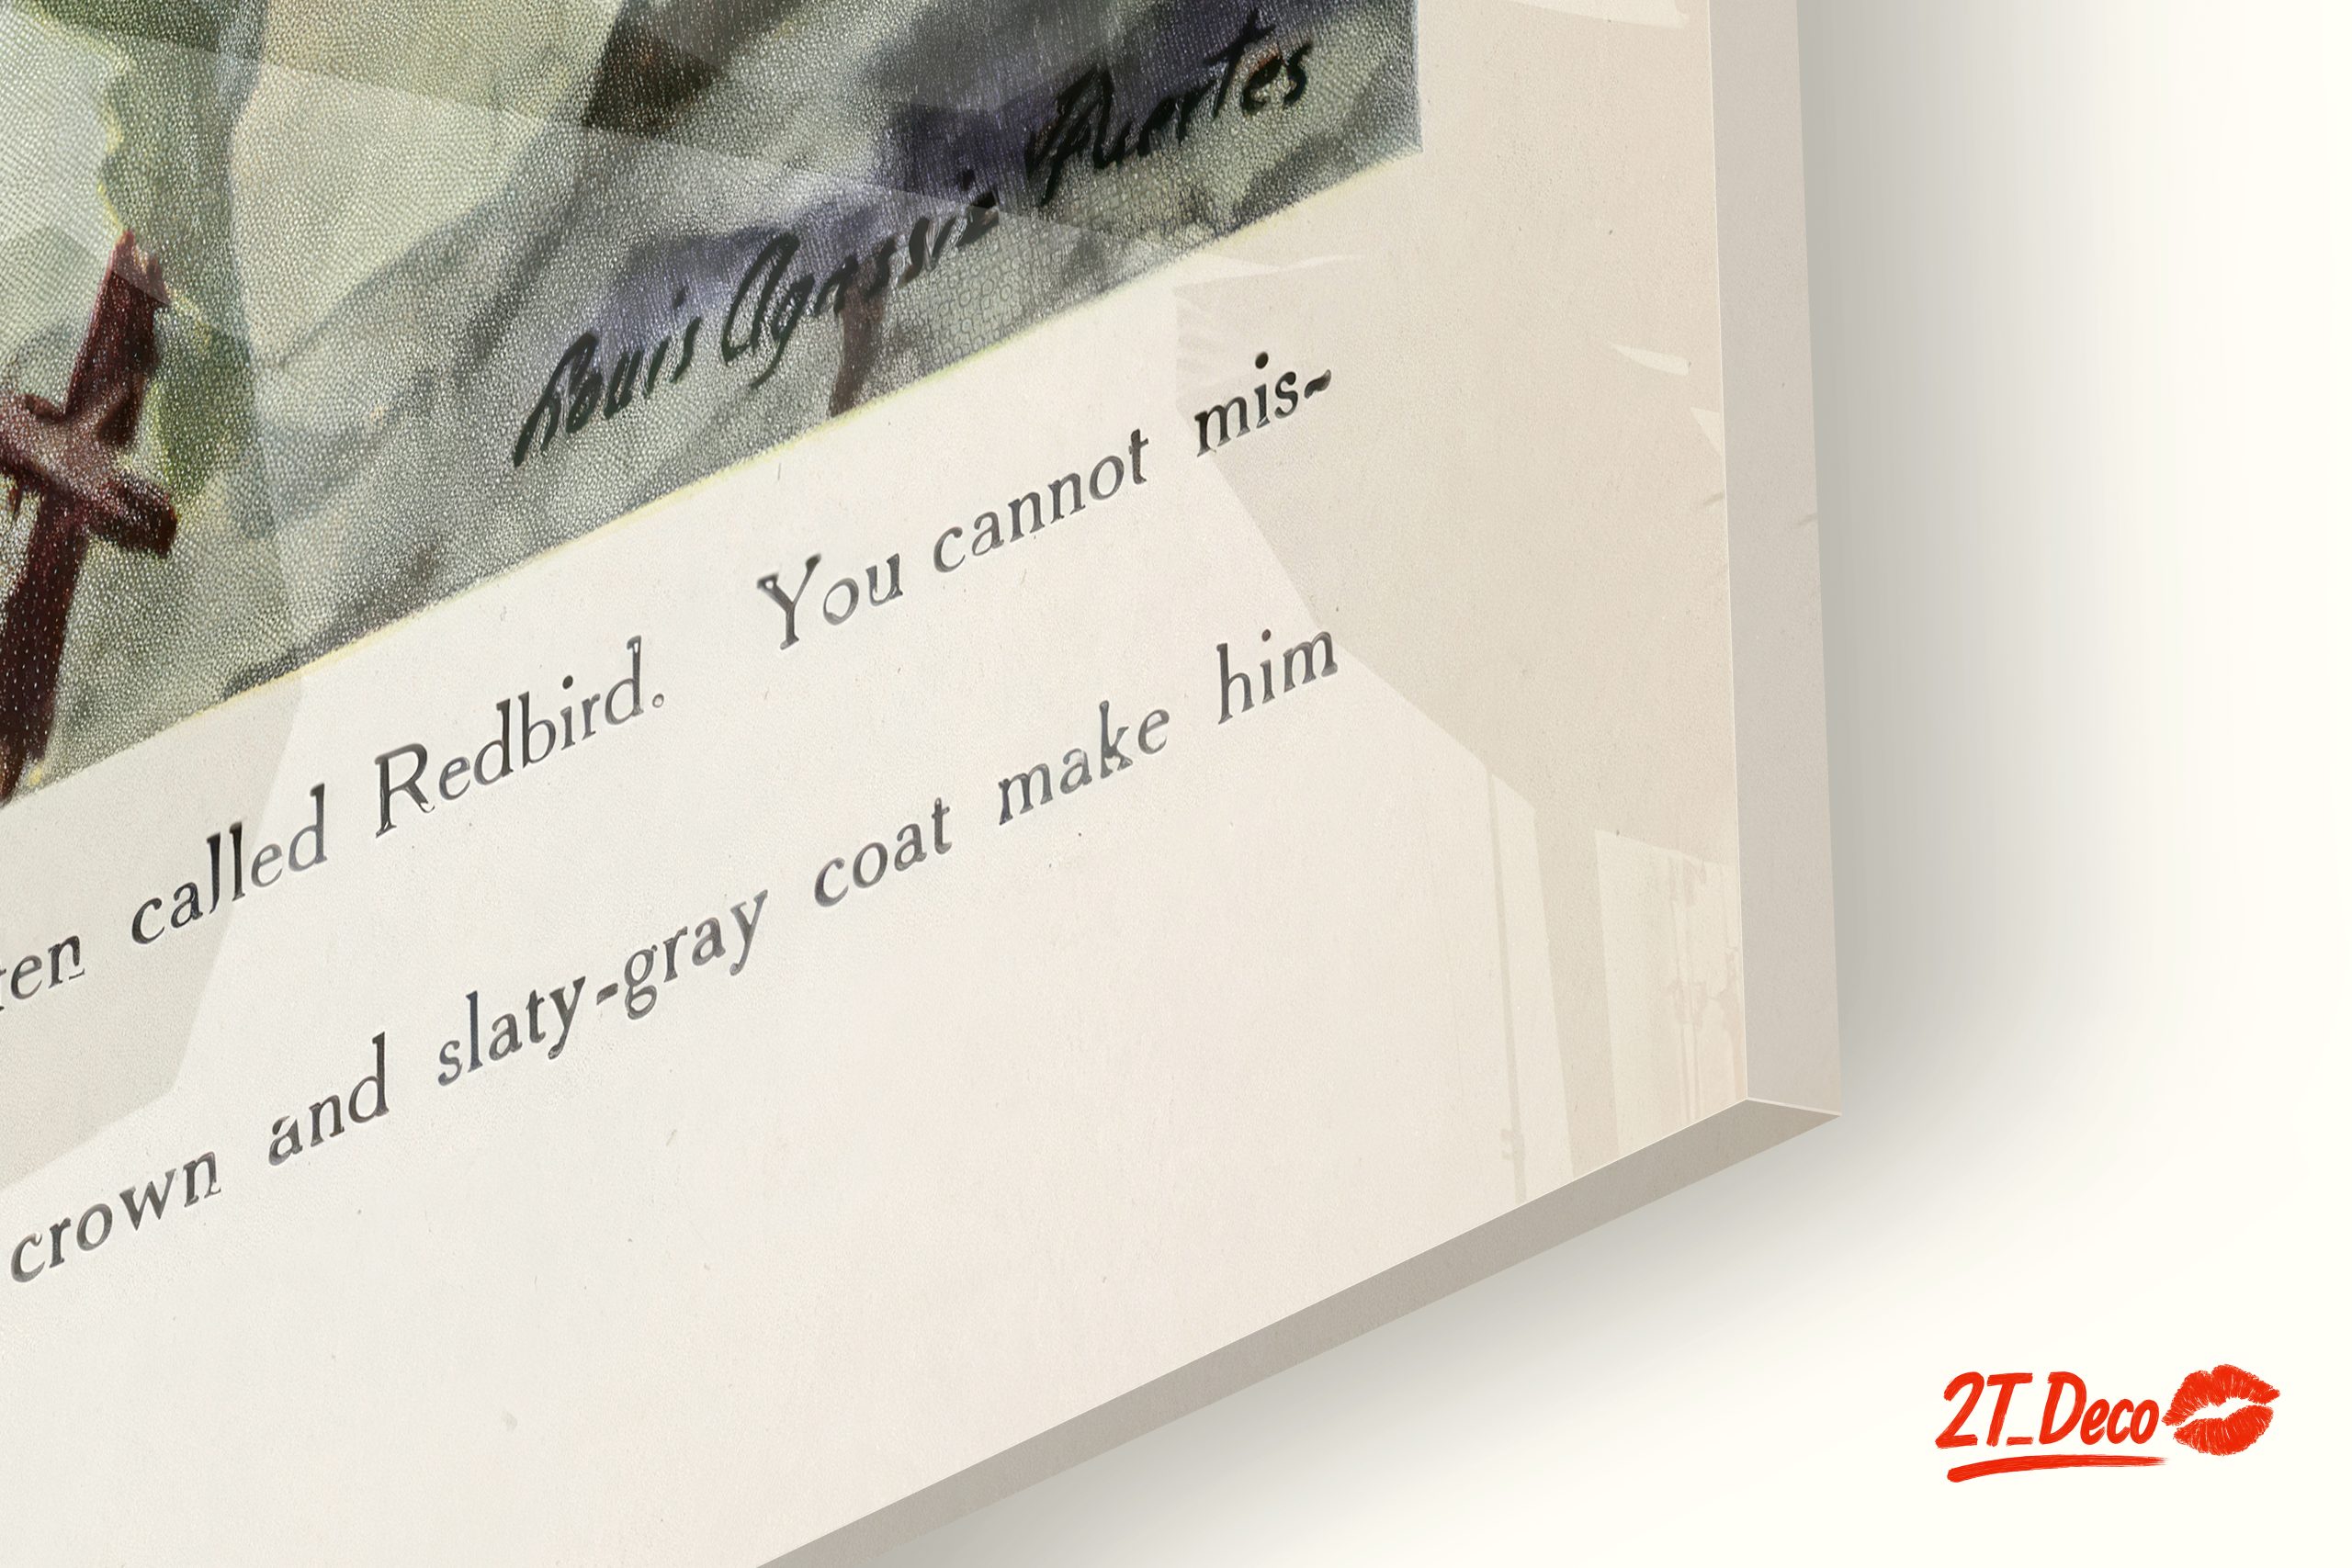 Louis Agassiz Fuertes
ten called Redbird. You cannot mis-
crown and slaty-gray coat make him
2T_Deco